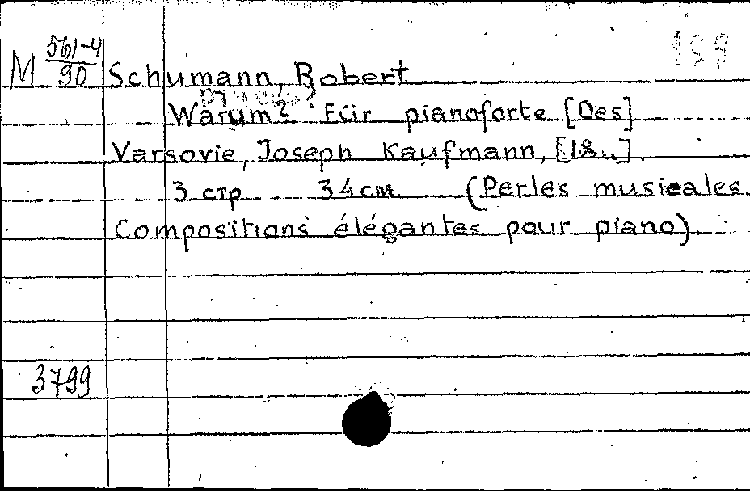 M 561-4/90 Schumann, Robert
Warum? Für pianoforte [Des]
Varsovie, Joseph Kaufmann, [18..]
3 стр 34 см (Perles musicales
Compositions élégantes pour piano)
3799